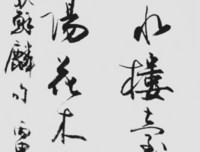 水樓臺
陽花木
蘇麟句 丙